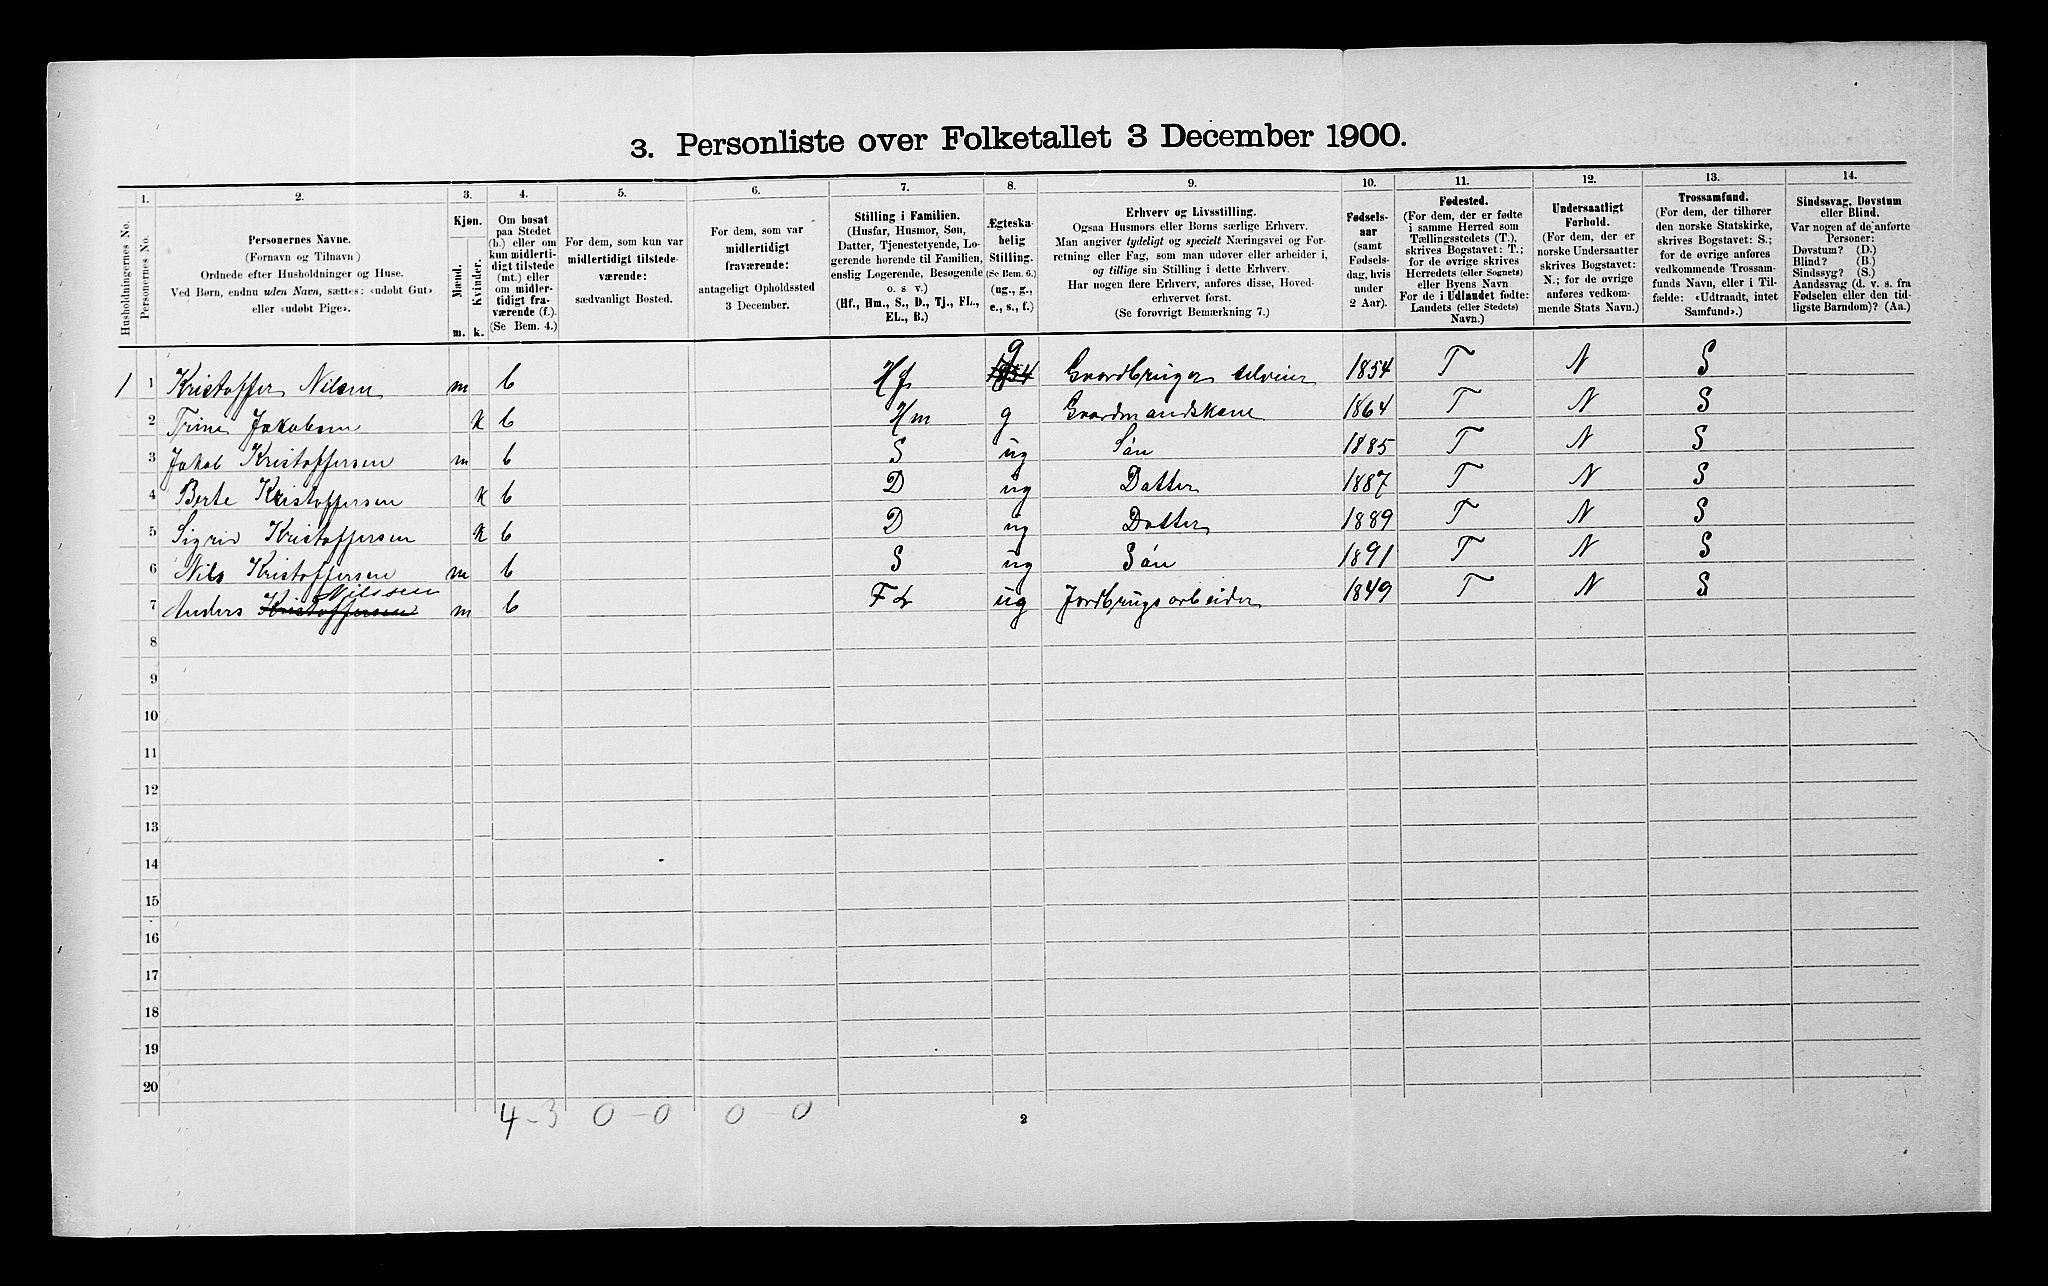 3. Personliste over Folketallet 3 December 1900.
1. 2. 3. 4. 5. 6. 7. 8. 9. 10. 11. 12. 13. 14.
Husholdningernes No.
Personernes No.
Personernes Navne.
(Fornavn og Tilnavn)
Ordnede efter Husholdninger og Huse.
Ved Børn, endnu uden Navn, sættes: «udøbt Gut»
eller «udøbt Pige».
Kjøn.
Mænd.
Kvinder.
m. k.
Om bosat
paa Stedet
(b.) eller om
kun midlerti-
digt tilstede
(mt.) eller
om midler-
tidigt fra-
værende (f.).
(Se Bem. 4.)
For dem, som kun var
midlertidigt tilstede-
værende:
sædvanligt Bosted.
For dem, som var
midlertidigt
fraværende:
antageligt Opholdssted
3 December.
Stilling i Familien.
(Husfar, Husmor, Søn,
Datter, Tjenestetyende, Lo-
gerende hørende til Familien,
enslig Logerende, Besøgende
o. s v.)
(Hf., Hm., S., D., Tj., FL.,
EL., B.)
Ægteska-
belig
Stilling.
(Se Bem. 6.)
(ug., g.,
e., s., f.)
Erhverv og Livsstilling.
Ogsaa Husmors eller Børns særlige Erhverv.
Man angiver tydeligt og specielt Næringsvei og For-
retning eller Fag, som man udøver eller arbeider i,
og tillige sin Stilling i dette Erhverv.
Har nogen flere Erhverv, anføres disse, Hoved-
erhvervet først.
(Se forøvrigt Bemærkning 7.)
Fødsels-
aar
(samt
Fødsels-
dag, hvis
under
2 Aar).
Fødested.
(For dem, der er fødte
i samme Herred som
Tællingsstedets (T.),
skrives Bogstavet: T.;
for de øvrige skrives
Herredets (eller Sognets)
eller Byens Navn
For de i Udlandet fødte:
Landets (eller Stedets)
Navn.)
Undersaatligt
Forhold.
(For dem, der er
norske Undersaatter
skrives Bogstavet:
N.; for de øvrige
anføres vedkom-
mende Stats Navn.)
Trossamfund.
(For dem, der tilhører
den norske Statskirke,
skrives Bogstavet: S.;
for de øvrige anføres
vedkommende Trossam-
funds Navn, eller i Til-
fælde: «Udtraadt, intet
Samfund».)
Sindssvag, Døvstum
eller Blind.
Var nogen af de anførte
Personer:
Døvstum? (D.)
Blind? (B.)
Sindssyg? (S.)
Aandssvag (d. v. s. fra
Fødselen eller den tid-
ligste Barndom)? (Aa.)
1 1 Kristoffer Nilsen m b Hf 1854 g Gaardbruger selveier 1854 T N S
2 Trine Jakobsen k b Hm g Gaardmandskone 1864 T N S
3 Jakob Kristoffersen m b S ug Søn 1885 T N S
4 Berte Kristoffersen k b D ug Datter 1887 T N S
5 Sigrid Kristoffersen k b D ug Datter 1889 T N S
6 Nils Kristoffersen m b S ug Søn 1891 T N S
7 Anders Kristoffersen Nilssen m b FL ug Jordbrugsarbeider 1849 T N S
8
9
10
11
12
13
14
15
16
17
18
19
20
4-3 0-0 0-0
2